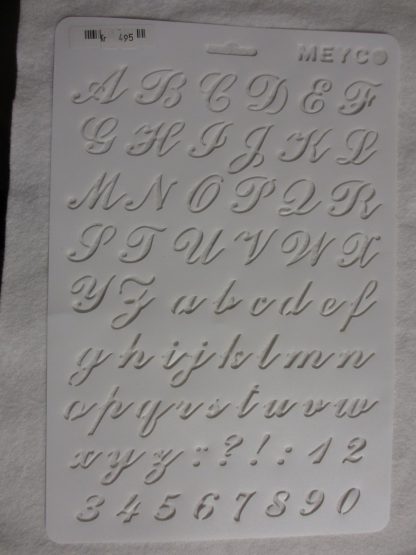 Kr 495
MEYCO
A B C D E F
G H I J K L
M N O P Q R
S T U V W X
Y Z a b c d e f
g h i j k l m n
o p q r s t u v w
x y z : ? ! : 1 2
3 4 5 6 7 8 9 0